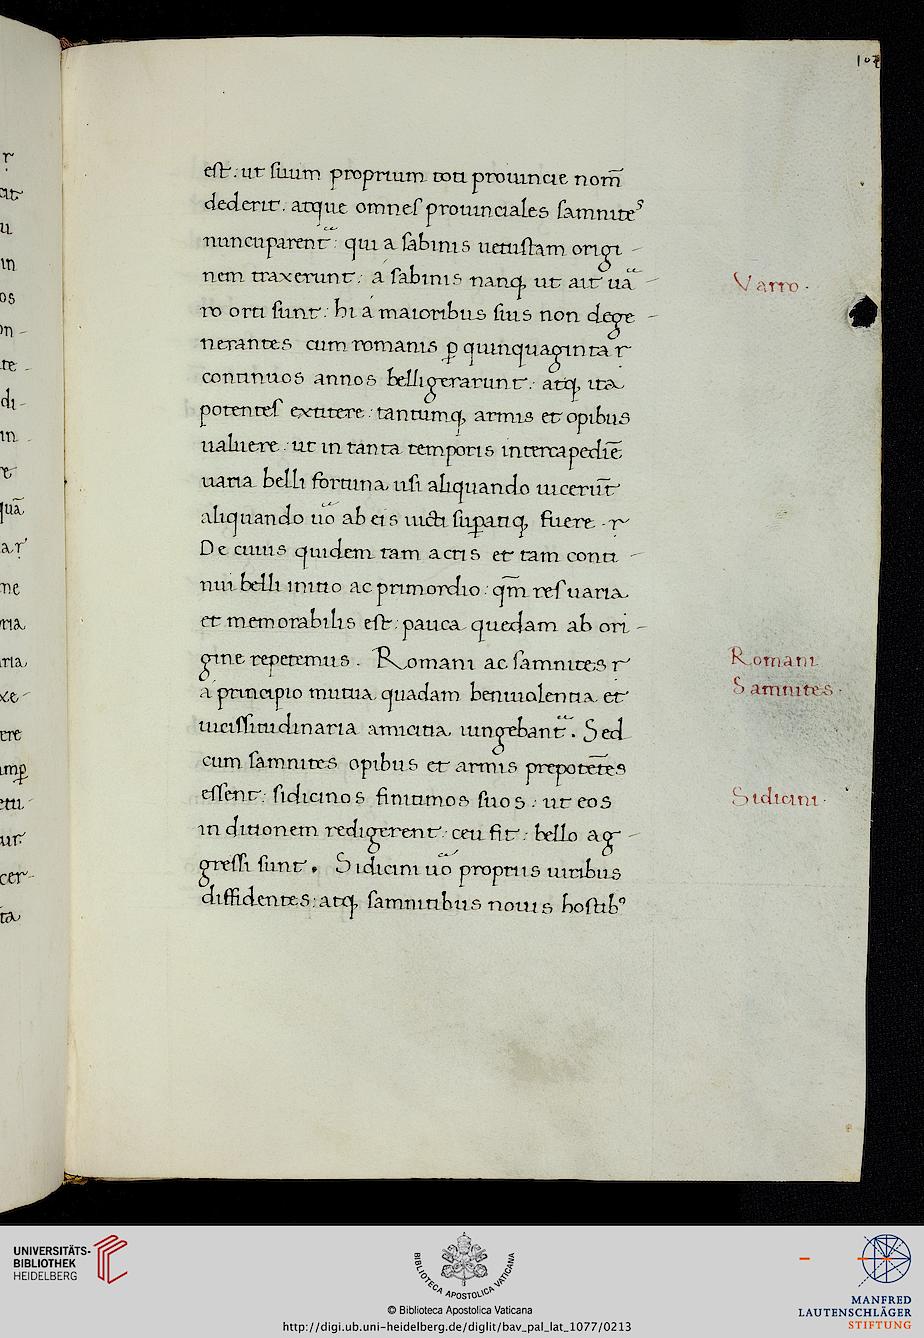 107
est: ut suum proprium toti prouincie nom̅
dederit. atque omnes prouinciales samnites
nuncuparentᷓ: qui a sabinis uetustam origi-
nem traxerunt: á sabinis nanq, ut ait uaᷓ-
ro orti sunt: hi á maioribus suis non dege-
nerantes cum romanis ꝑ quinquaginta r
continuos annos belligerarunt: atq, ita
potentes extitere: tantumq, armis et opibus
ualuere: ut in tanta temporis intercapedie̅
uaria belli fortuna usi aliquando uiceru̅t
aliquando uoᷓ ab eis uicti suꝑatiq, fuere. r
De cuius quidem tam actis et tam conti-
nui belli initio ac primordio: qm̅ res uaria
et memorabilis est: pauca quedam ab ori-
gine repetemus. Romani ac samnites r
á principio mutua quadam beniuolentia et
uicissitudinaria amicitia iungebantᷓ. Sed
cum samnites opibus et armis prepote̅tes
essent: sidicinos finitimos suos: ut eos
in ditionem redigerent: ceu fit: bello ag-
gressi sunt. Sidicini uoᷓ propriis uiribus
diffidentes: atq, samnitibus nouis hostibꝰ
Varro.
Romani
Samnites.
Sidicini.
UNIVERSITÄTS-
BIBLIOTHEK
HEIDELBERG
BIBLIOTECA APOSTOLICA VATICANA
© Biblioteca Apostolica Vaticana
http://digi.ub.uni-heidelberg.de/diglit/bav_pal_lat_1077/0213
MANFRED
LAUTENSCHLÄGER
STIFTUNG